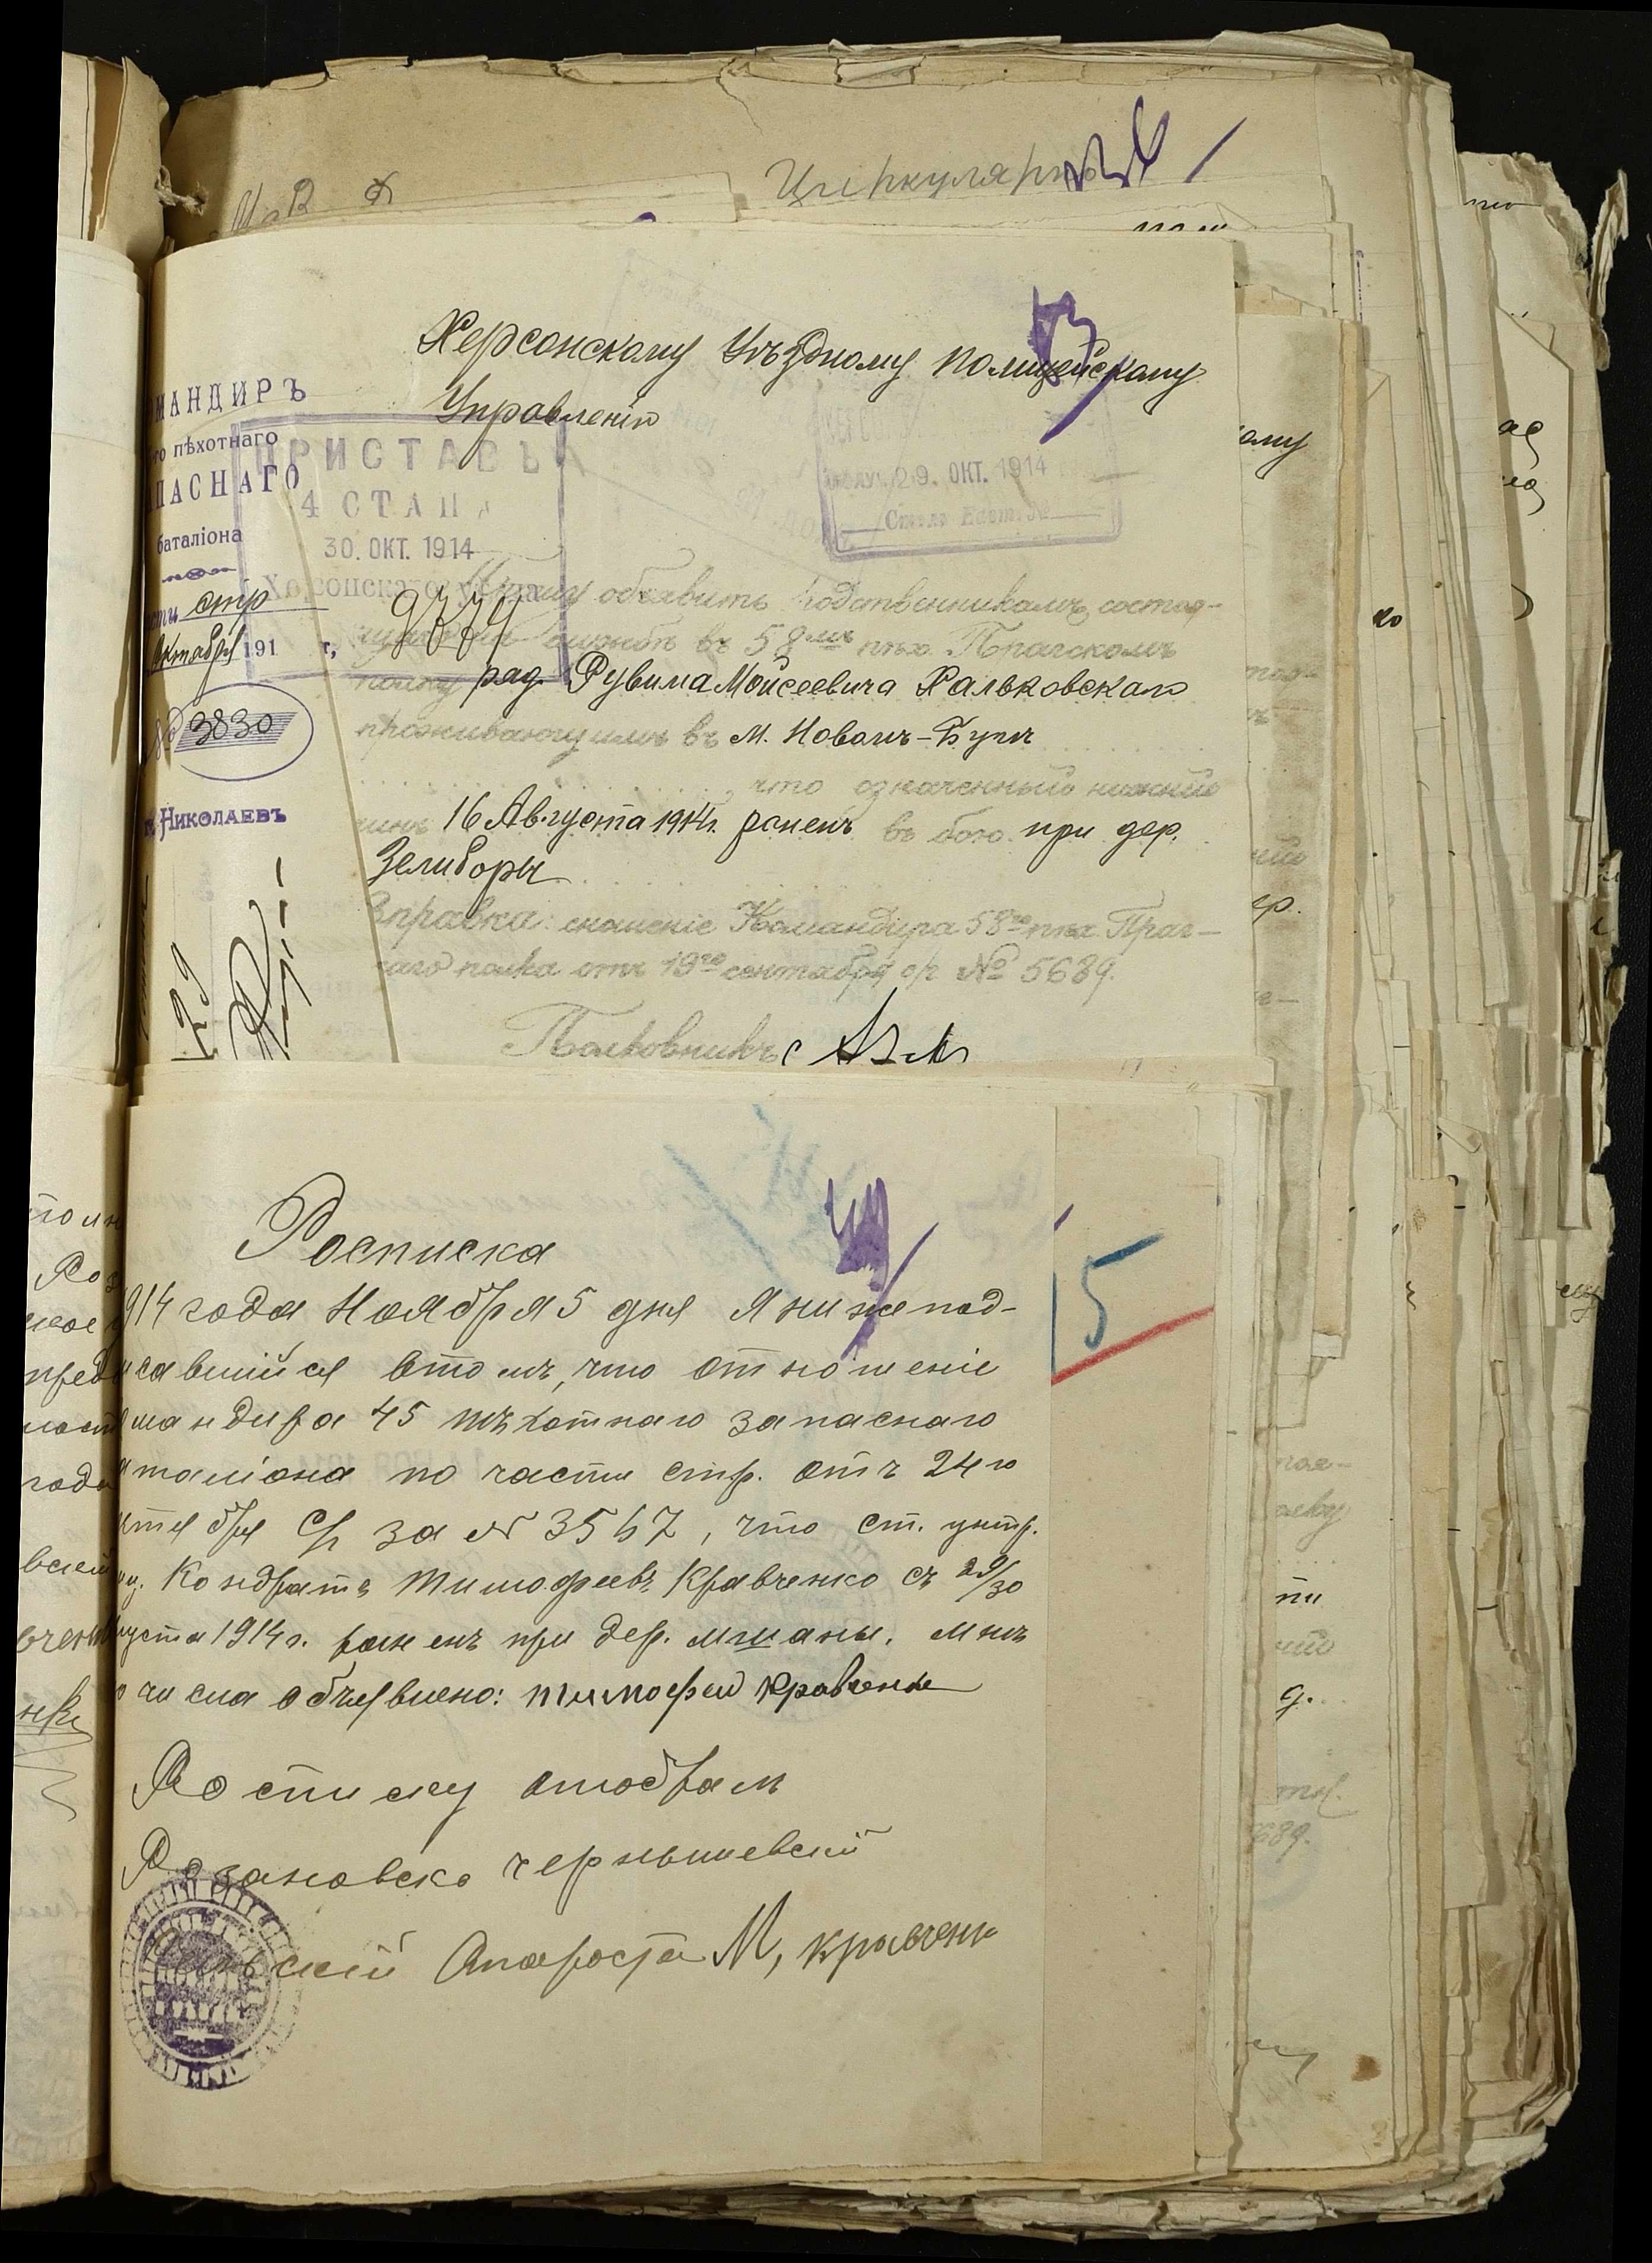 Циркулярно
Херсонскому Уѣздному Полицейскому
Управленію
МАНДИРЪ
го пѣхотнаго
ПАСНАГО
баталіона
сти стр
Октября 191 г,
№ 3830
г. НИКОЛАЕВЪ
ПРИСТАВЪ
4 СТАНА
30. ОКТ. 1914
Херсонскаго уѣзда
9774
29. ОКТ. 1914
Прошу объявить родственникамъ, состоя-
щаго на службѣ въ 58мъ пѣх. Прагскомъ
полку ряд. Рувима Мойсеевича Хальковскаго
проживающимъ въ м. Новомъ-Бугѣ
, что означенный нижній
чинъ 16 Августа 1914 г. раненъ въ бою при дер.
Зелиборы
Справка: сношеніе Командира 58го пѣх. Праг-
скаго полка отъ 19го сентября с/г № 5689.
Полковникъ
Росписка
914 года Ноября 5 дня Я нижепод-
исавшийся втомъ, что отношеніе
мандира 45 пѣхотнаго запаснаго
аталіона по части стр. отъ 24го
ктября с/г за № 3567, что ст. унтр.
Кондратъ Тимофеевъ Кравченко съ 29/30
вгуста 1914 г. раненъ при дер. Мшаны. мнѣ
числа объявлено: Тимофей Кравченко
Росписку отобралъ
Розановско Чернышевскій
сельскій Староста М, Кравченк
5